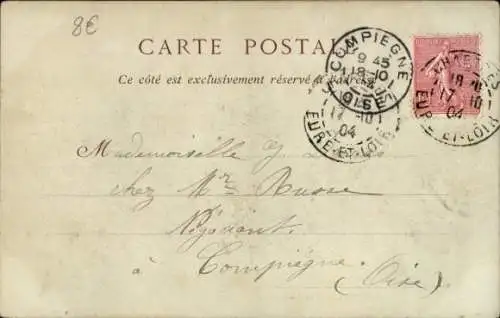 8€
CARTE POSTALE
Ce côté est exclusivement réservé à l'adresse
COMPIEGNE
9 45
18-10
OISE
17 -10
04
EURE-ET-LOIR
17 -10
04
EURE-ET-LOIR
Mademoiselle J.
chez Mr Russe
Négociant
à Compiègne. (Oise)